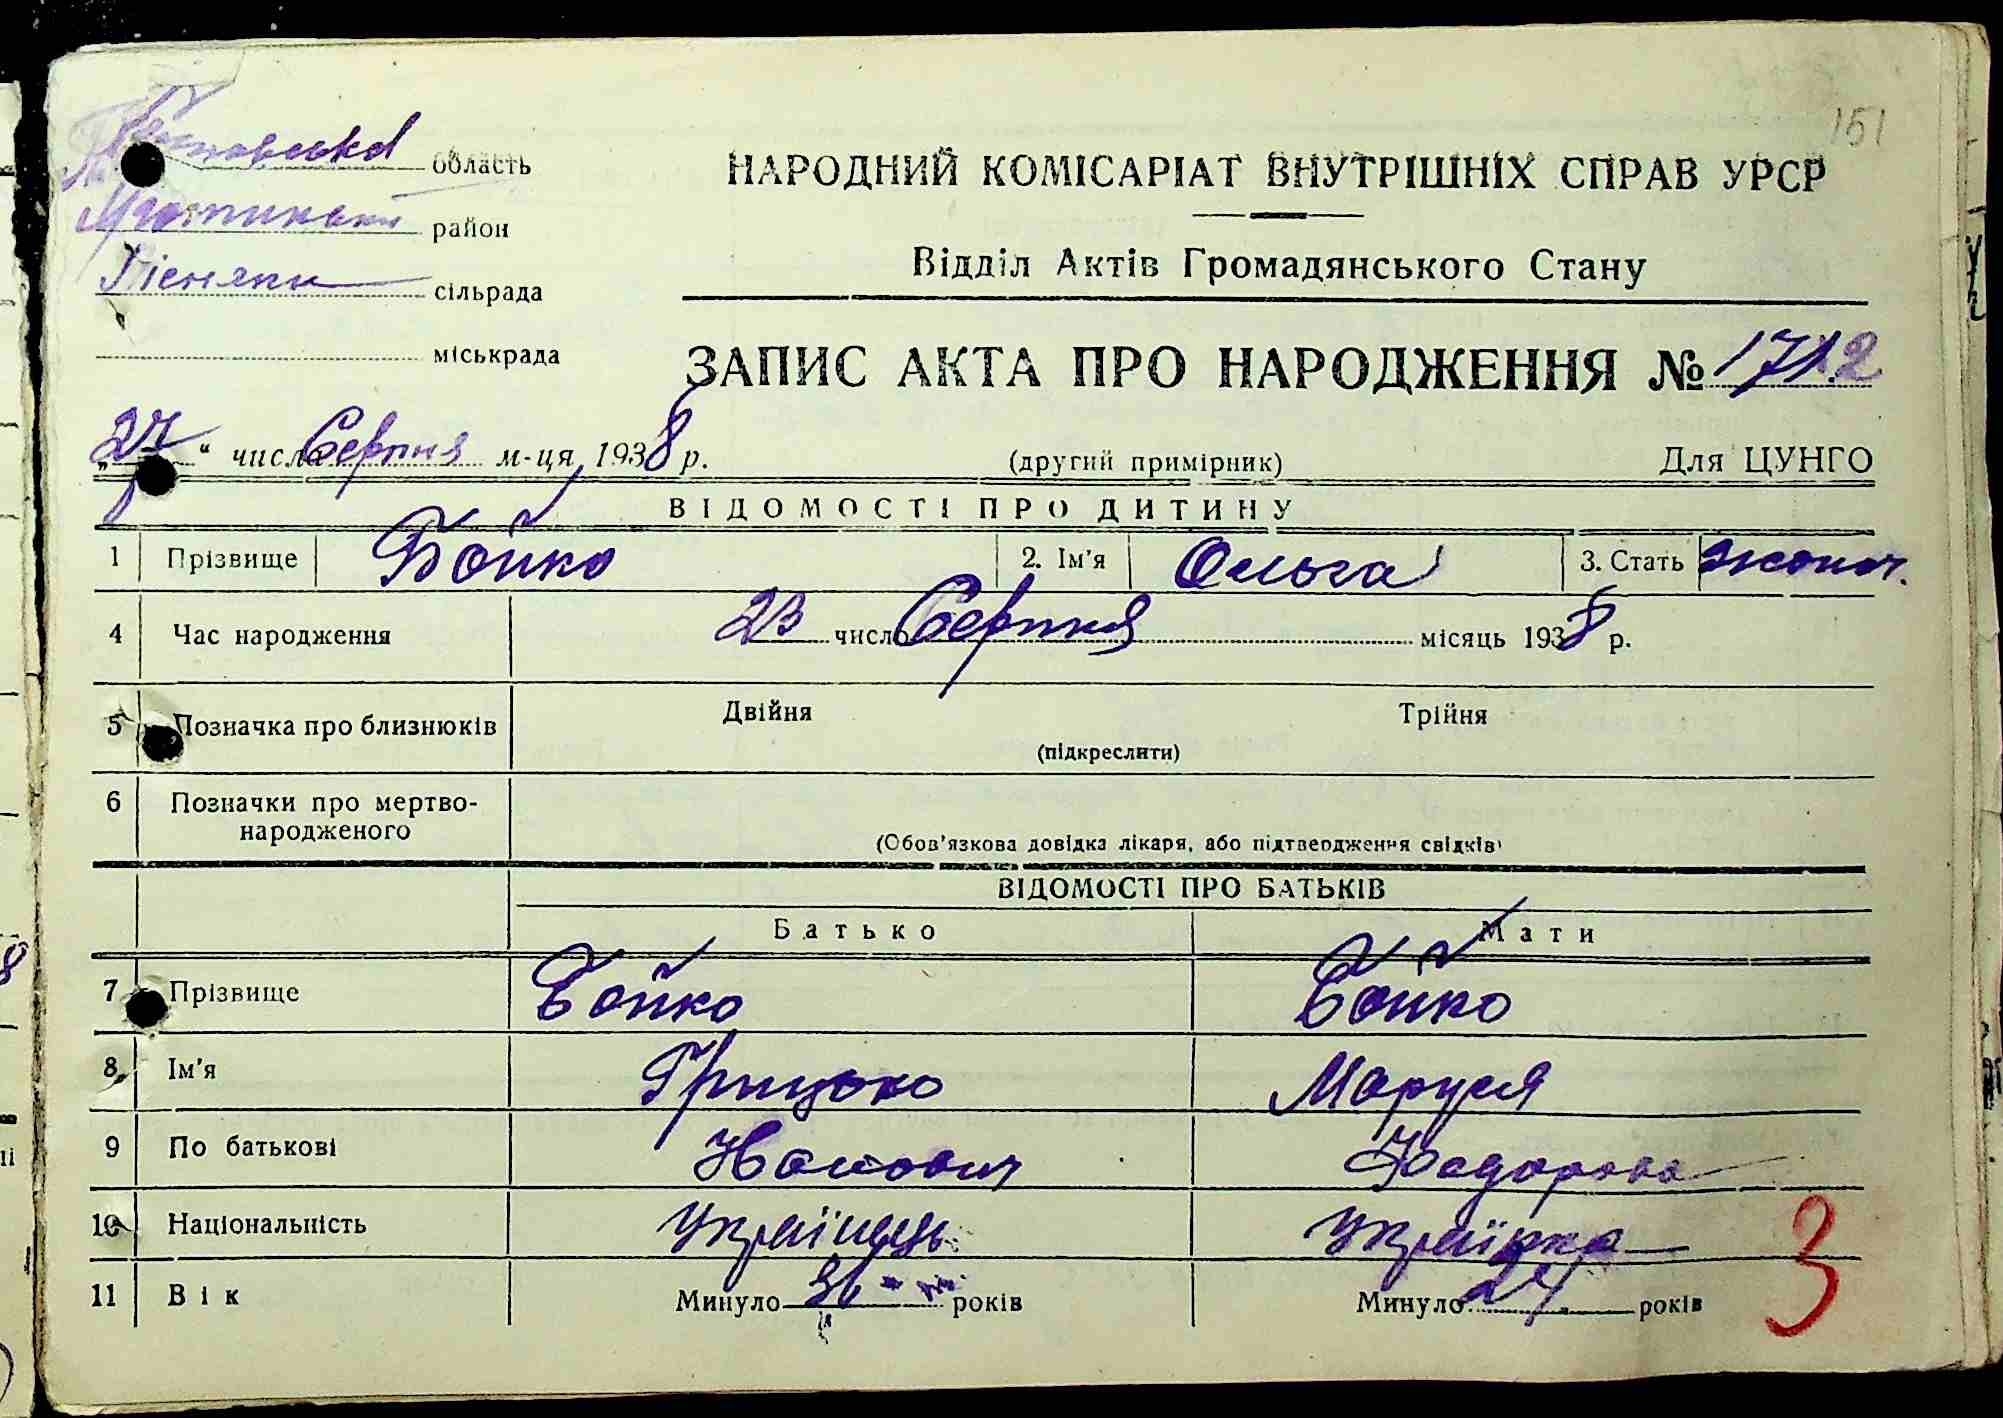 151
область
район
НАРОДНИЙ КОМІСАРІАТ ВНУТРІШНІХ СПРАВ УРСР
Лісняки сільрада
Відділ Актів Громадянського Стану
міськрада
ЗАПИС АКТА ПРО НАРОДЖЕННЯ №
„27“ числа Серпня м-ця 1938 р. (другий примірник) Для ЦУНГО
ВІДОМОСТІ ПРО ДИТИНУ
1 Прізвище Бойко 2. Ім'я Ольга 3. Стать жоноч.
4 Час народження 23 число Серпня місяць 1938 р.
5 Позначка про близнюків Двійня Трійня
(підкреслити)
6 Позначки про мертво-
народженого
(Обов'язкова довідка лікаря, або підтвердження свідків)
ВІДОМОСТІ ПРО БАТЬКІВ
Батько Мати
7 Прізвище Бойко Бойко
8 Ім'я Грицько Маруся
9 По батькові Федорова
10 Національність Українець Українка
11 Вік Минуло 36 років Минуло 24 років
3